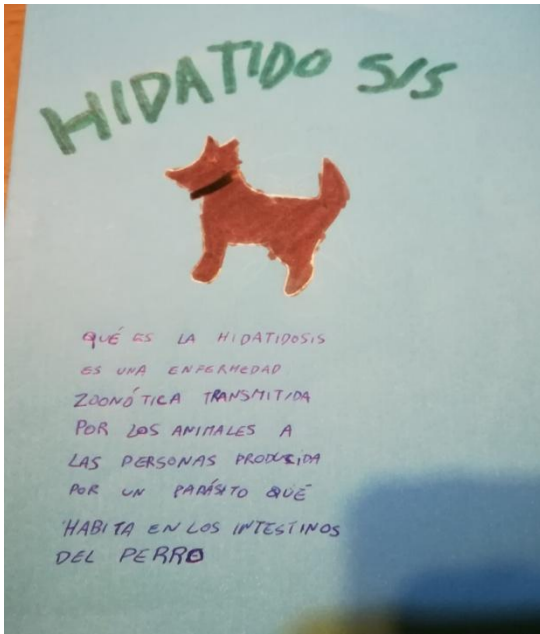 HIDATIDO SIS
QUÉ ES LA HIDATIDOSIS
ES UNA ENFERMEDAD
ZOONÓTICA TRANSMITIDA
POR LOS ANIMALES A
LAS PERSONAS PRODUCIDA
POR UN PARÁSITO QUÉ
HABITA EN LOS INTESTINOS
DEL PERRO